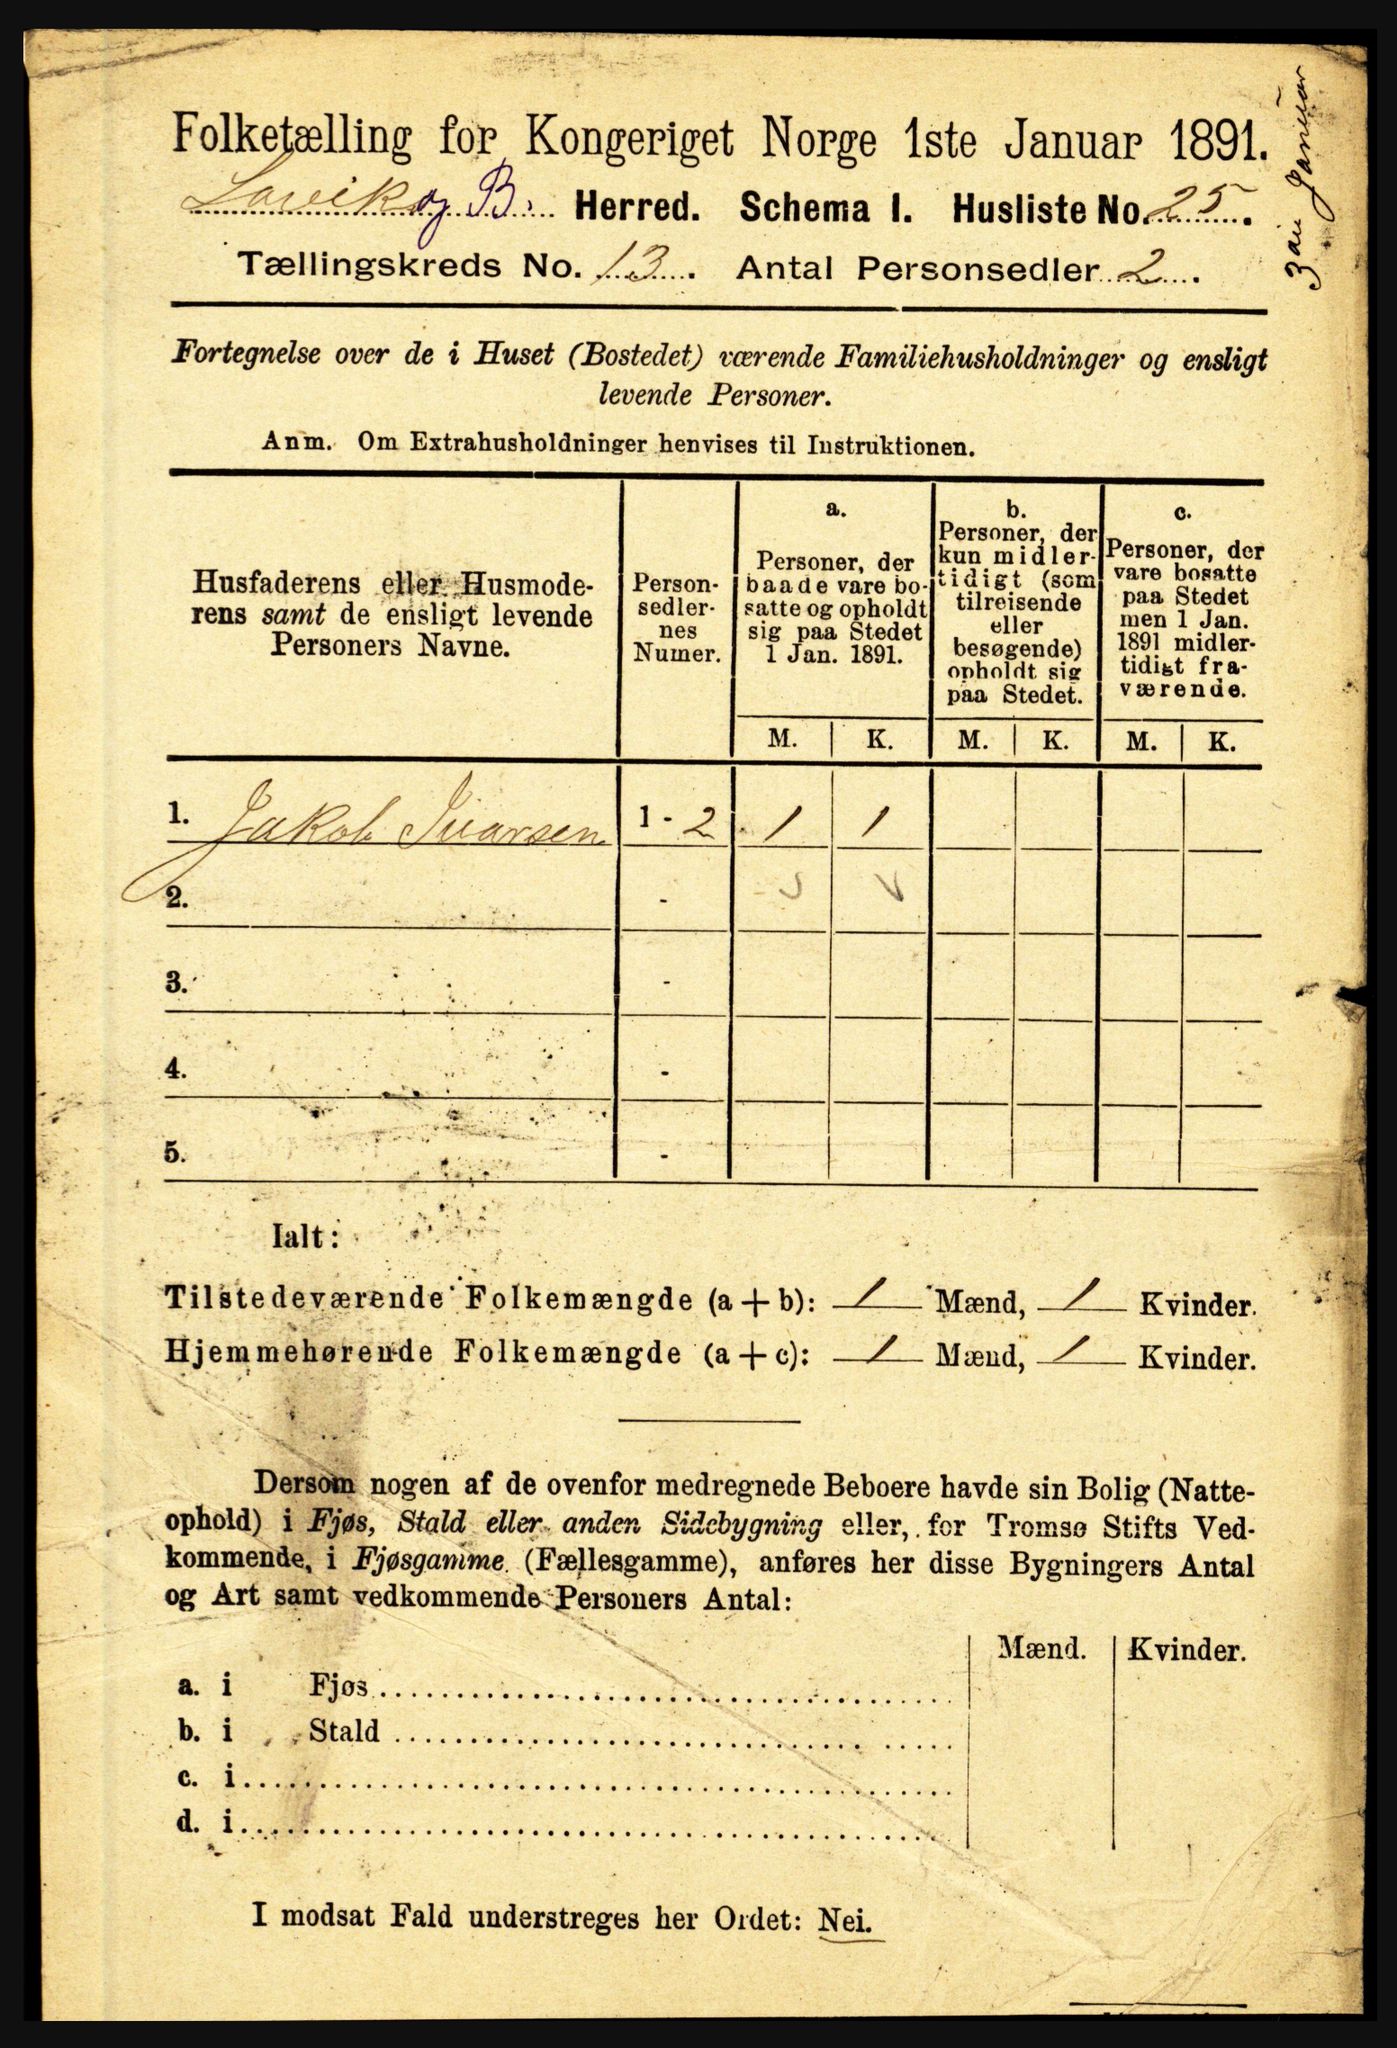 3die Januar
Folketælling for Kongeriget Norge 1ste Januar 1891.
Lavik og B. Herred. Schema I. Husliste No. 25.
Tællingskreds No. 13. Antal Personsedler 2.
Fortegnelse over de i Huset (Bostedet) værende Familiehusholdninger og ensligt
levende Personer.
Anm. Om Extrahusholdninger henvises til Instruktionen.
Husfaderens eller Husmode-
rens samt de ensligt levende
Personers Navne.
Person-
sedler-
nes
Numer.
a.
Personer, der
baade vare bo-
satte og opholdt
sig paa Stedet
1 Jan. 1891.
b.
Personer, der
kun midler-
tidigt (som
tilreisende
eller
besøgende)
opholdt sig
paa Stedet.
c.
Personer, der
vare bosatte
paa Stedet
men 1 Jan.
1891 midler-
tidigt fra-
værende.
M. K. M. K. M. K.
1. Jakob Ivarsen 1 - 2 1 1
2. -
3. -
4. -
5. -
Ialt:
Tilstedeværende Folkemængde (a + b): 1 Mænd, 1 Kvinder.
Hjemmehørende Folkemængde (a + c): 1 Mænd, 1 Kvinder.
Dersom nogen af de ovenfor medregnede Beboere havde sin Bolig (Natte-
ophold) i Fjøs, Stald eller anden Sidebygning eller, for Tromsø Stifts Ved-
kommende, i Fjøsgamme (Fællesgamme), anføres her disse Bygningers Antal
og Art samt vedkommende Personers Antal:
Mænd. Kvinder.
a. i Fjøs
b. i Stald
c. i
d. i
I modsat Fald understreges her Ordet: Nei.